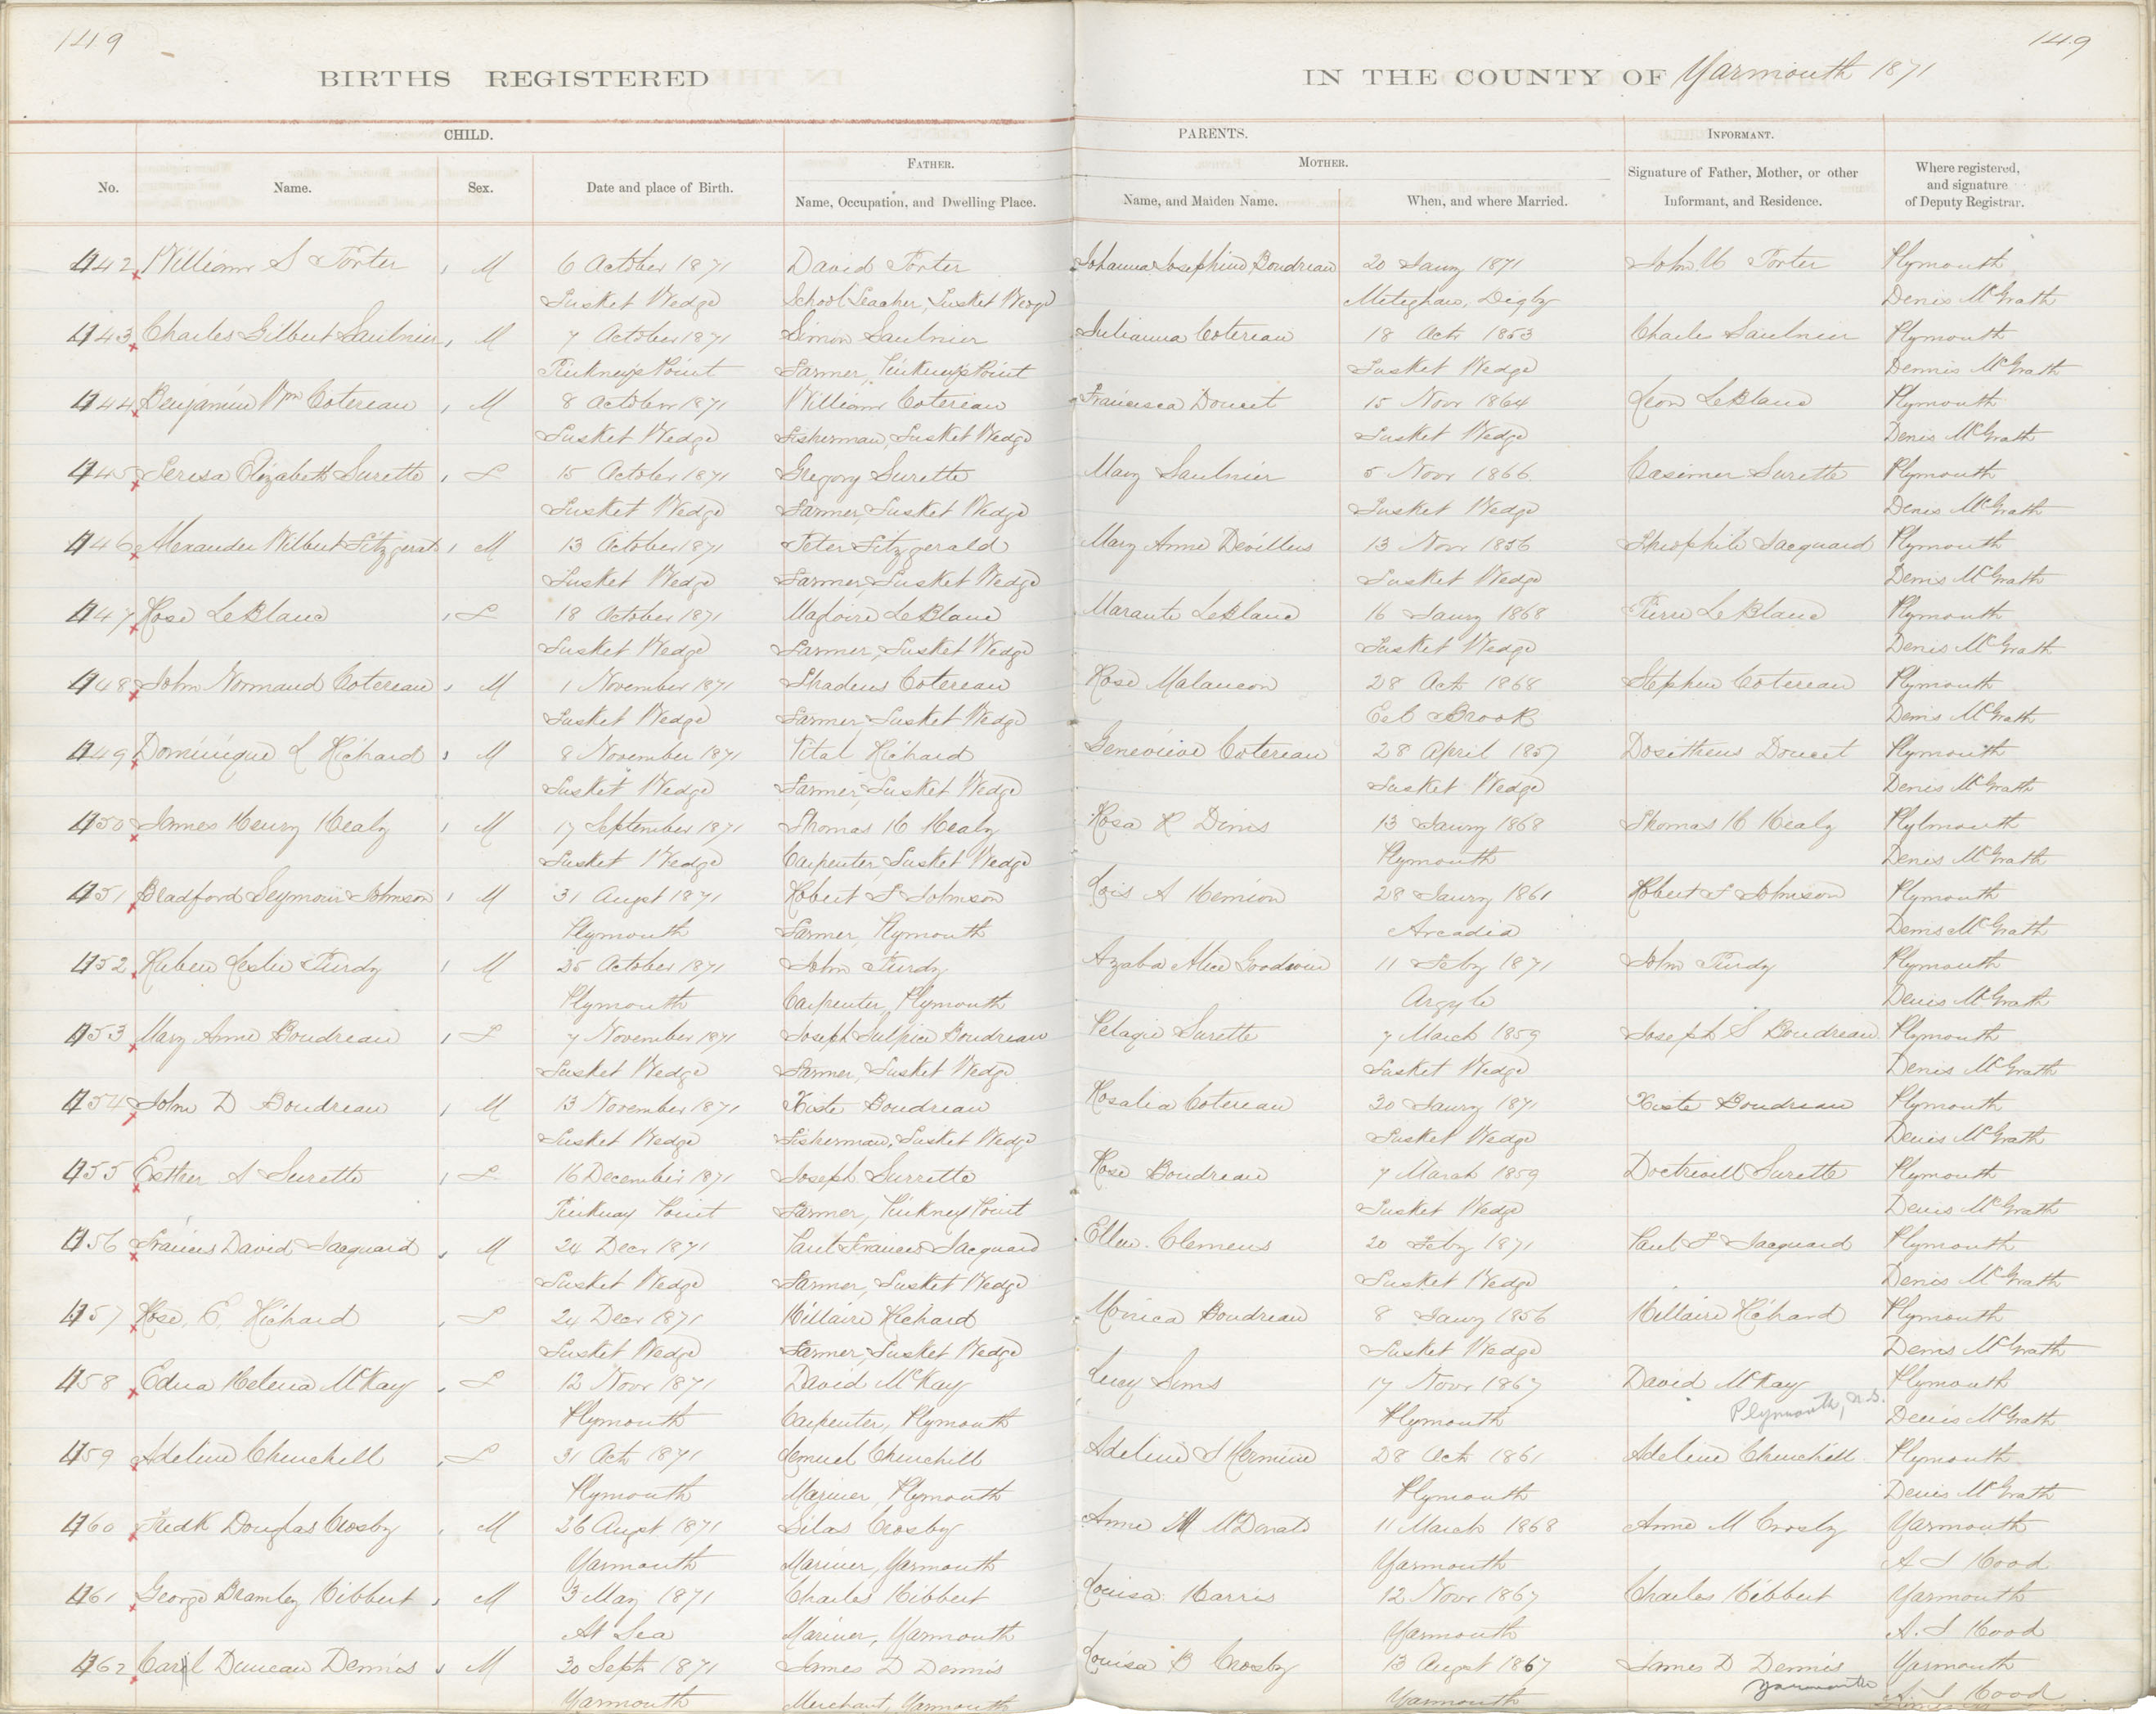 149
149
BIRTHS REGISTERED
IN THE COUNTY OF Yarmouth 1871
CHILD.
PARENTS.
INFORMANT.
FATHER.
MOTHER.
No.
Name.
Sex.
Date and place of Birth.
Name, Occupation, and Dwelling Place.
Name, and Maiden Name.
When, and where Married.
Signature of Father, Mother, or other
Informant, and Residence.
Where registered,
and signature
of Deputy Registrar.
142 William S Porter M 6 October 1871 David Porter Johanna Josephine Boudreau 20 Jany 1871 John Porter Plymouth
Tusket Wedge School Teacher, Tusket Wedge Meteghan, Digby Denis McGrath
143 Charles Gilbert Saulnier M 7 October 1871 Simon Saulnier Julianna Cotereau 18 Oct 1853 Charles Saulnier Plymouth
Pinkneys Point Farmer, Pinkneys Point Tusket Wedge Dennis McGrath
144 Benjamin Wm Cotereau M 8 October 1871 William Cotereau Francisca Doucet 15 Novr 1864 Leon LeBlanc Plymouth
Tusket Wedge Fisherman, Tusket Wedge Tusket Wedge Denis McGrath
145 Teresa Elizabeth Surette F 15 October 1871 Gregory Surette Mary Saulnier 5 Novr 1866 Casimer Surette Plymouth
Tusket Wedge Farmer, Tusket Wedge Tusket Wedge Denis McGrath
146 Alexander Wilbert Fitzgerald M 13 October 1871 Peter Fitzgerald Mary Anne Devillers 13 Novr 1856 Theophile Jacquard Plymouth
Tusket Wedge Farmer, Tusket Wedge Tusket Wedge Denis McGrath
147 Rose LeBlanc F 18 October 1871 Magloire LeBlanc Marante LeBlanc 16 Jany 1868 Pierre LeBlanc Plymouth
Tusket Wedge Farmer, Tusket Wedge Tusket Wedge Denis McGrath
148 John Normand Cotereau M 1 November 1871 Thadeus Cotereau Rose Malancon 28 Oct 1868 Stephen Cotereau Plymouth
Tusket Wedge Farmer, Tusket Wedge Eel Brook Denis McGrath
149 Dominique L Richard M 8 November 1871 Vital Richard Genevieve Cotereau 28 April 1857 Dositheus Doucet Plymouth
Tusket Wedge Farmer, Tusket Wedge Tusket Wedge Denis McGrath
150 James Henry Healy M 17 September 1871 Thomas H Healy Rosa R Dinis 13 Jany 1868 Thomas H Healy Plylmouth
Tusket Wedge Carpenter, Tusket Wedge Plymouth Denis McGrath
151 Bradford Seymour Johnson M 31 Augst 1871 Robert F Johnson Lois A Hemion 28 Jany 1861 Robert F Johnson Plymouth
Plymouth Farmer, Plymouth Arcadia Denis McGrath
152 Ruben Leslie Purdy M 25 October 1871 John Purdy Azaba Alice Goodwin 11 Feby 1871 John Purdy Plymouth
Plymouth Carpenter, Plymouth Argyle Denis McGrath
153 Mary Anne Boudreau F 7 November 1871 Joseph Sulpice Boudreau Pelagie Surette 7 March 1859 Joseph S Boudreau Plymouth
Tusket Wedge Farmer, Tusket Wedge Tusket Wedge Denis McGrath
154 John D Boudreau M 13 November 1871 Xiste Boudreau Rosalia Cotereau 30 Jany 1871 Xiste Boudreau Plymouth
Tusket Wedge Fisherman, Tusket Wedge Tusket Wedge Denis McGrath
155 Esther A Surette F 16 December 1871 Joseph Surrette Rose Boudreau 7 March 1859 Surette Plymouth
Pinkney Point Farmer, Pinkney Point Tusket Wedge Denis McGrath
156 Francis David Jacquard M 24 Decr 1871 Paul Francis Jacquard Ellen Clemens 20 Feby 1871 Paul F Jacquard Plymouth
Tusket Wedge Farmer, Tusket Wedge Tusket Wedge Denis McGrath
157 Rose E. Richard F 24 Decr 1871 Hillaire Richard Monica Boudreau 8 Jany 1856 Hillaire Richard Plymouth
Tusket Wedge Farmer, Tusket Wedge Tusket Wedge Denis McGrath
158 Edna Helena McKay F 12 Novr 1871 David McKay Lucy Sims 17 Novr 1867 David McKay Plymouth
Plymouth Carpenter, Plymouth Plymouth Plymouth, N.S. Denis McGrath
159 Adeline Churchill F 31 Oct 1871 Lemuel Churchill Adeline 28 Oct 1861 Adeline Churchill Plymouth
Plymouth Mariner, Plymouth Plymouth Denis McGrath
160 Fredk Douglas Crosby M 26 Augst 1871 Silas Crosby Anne M McDonald 11 March 1868 Anne M Crosby Yarmouth
Yarmouth Mariner, Yarmouth Yarmouth A J Hood
161 George Bramley Hibbert M 3 May 1871 Charles Hibbert Louisa Harris 12 Novr 1867 Charles Hibbert Yarmouth
At Sea Mariner, Yarmouth Yarmouth A. J Hood
162 Carl Duncan Dennis M 30 Sept 1871 James D Dennis Louisa B Crosby 13 Augst 1867 James D Dennis Yarmouth
Yarmouth Merchant, Yarmouth Yarmouth Yarmouth A. J Hood